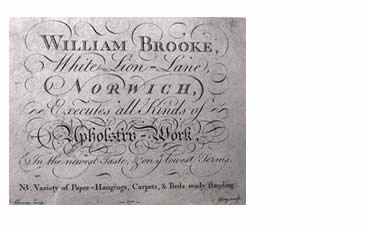 WILLIAM BROOKE,
White-Lion-Lane,
NORWICH,
Executes all Kinds of
Upholstry-Work,
In the newest Taste, & on yͤ lowest Terms.
NB. Variety of Paper-Hangings, Carpets, & Beds ready standing.